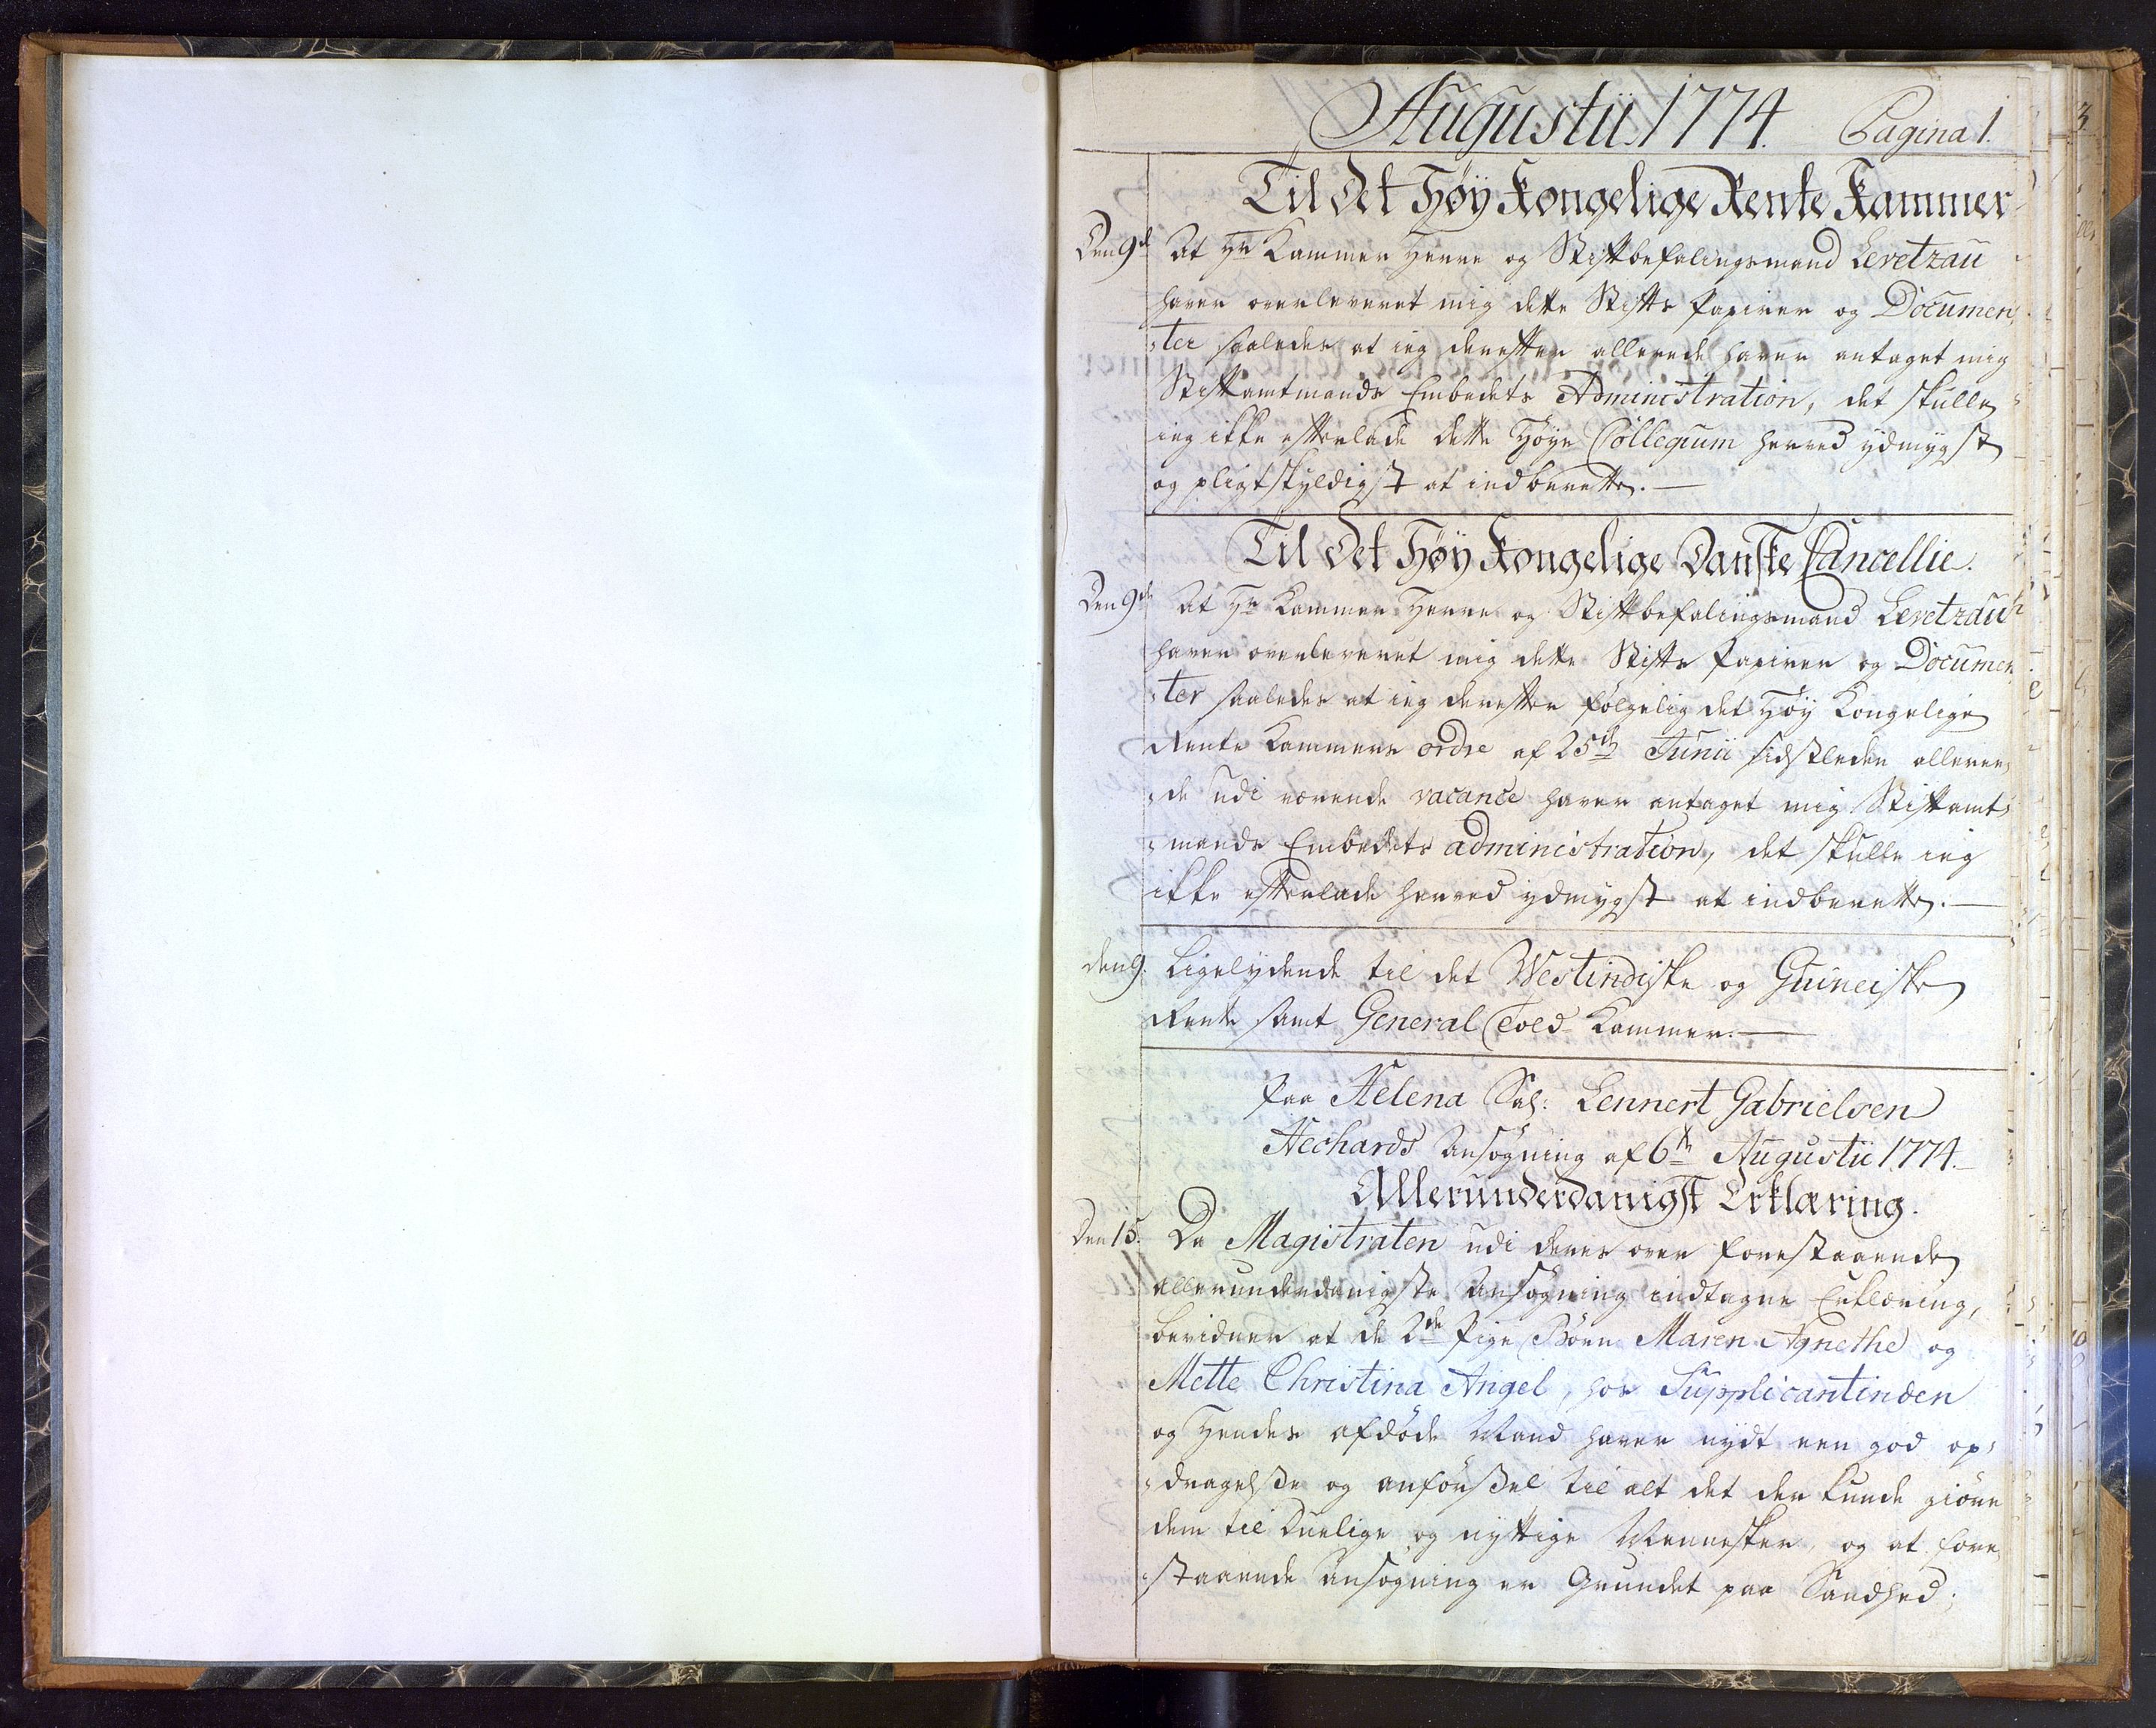 Augustii 1774. Pagina 1.
Til Det Høy Kongelige Rente Kammer
Den 9de At Hr Kammer Herre og Stiftbefalingsmand Levetzau
haver overleveret mig dette Stifts Papirer og Documen,
,ter saaledes at ieg derefter allerede haver antaget mig
Stiftamtmands Embedets Administration, det skulle
ieg ikke efterlade dette Høye Collegium herved ydmygst
og pligtskyldigst at indberette.
Til Det Høy Kongelige Danske Cancellie.
Den 9de At Hr Kammer Herre og Stiftbefalingsmand Levetzau
haver overleveret mig dette Stifts Papirer og Documen
,ter saaledes at ieg derefter følgelig det Høy Kongelige
Rente Kammers ordre af 25de Junii sidstleden alleree,
,de udi værende vacance haver antaget mig Stiftamt,
,mands Embedets administration, det skulle ieg
ikke efterlade herved ydmygst at indberette.
den 9. Ligelydende til det Westindiske og Guineiske
Rente samt General Told Kammer.
Paa Helena Sal: Lennert Gabrielsen
Hechards Ansøgning af 6te Augustii 1774.
Allerunderdanigst Erklæring.
Den 15. Da Magistraten udi deres over forestaaende
allerunderdanigste Ansøgning indtagne Erklæring,
bevidner at de 2de Pige Børn Maren Agnethe og
Mette Christina Angel, hos Supplicantinden
og Hendes afdøde Mand haver nydt een god op,
,dragelsse og anførssel til alt det der kunde giøre
dem til duelige og nyttige Mennesker, og at fore,
,staaende Ansøgning er Grundet paa Sandhed;